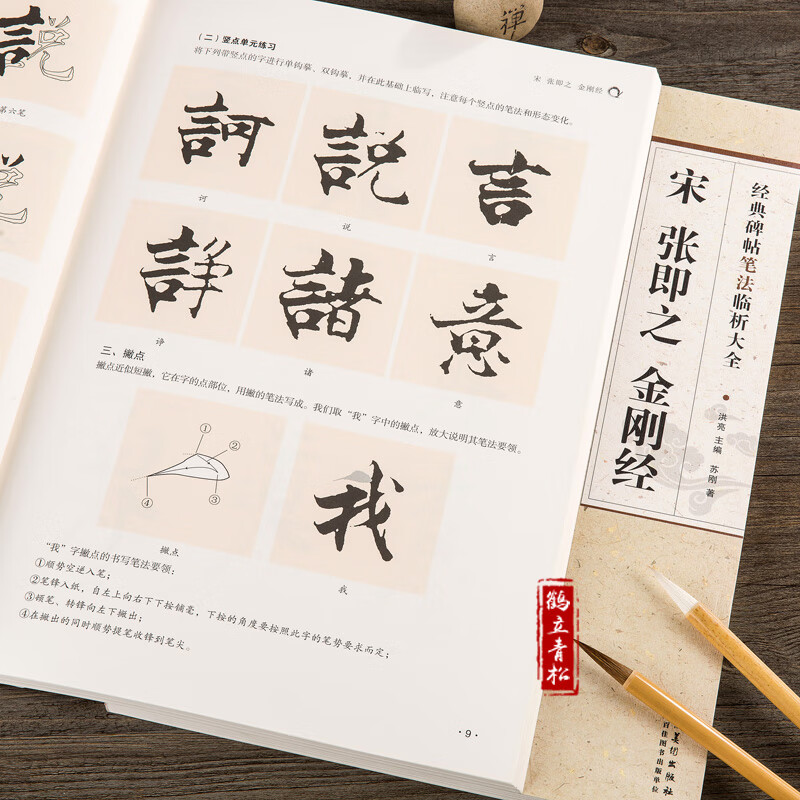 说
第六笔
说
（二）竖点单元练习
将下列带竖点的字进行单钩摹、双钩摹，并在此基础上临写，注意每个竖点的笔法和形态变化。
宋 张即之 金刚经
訶 説 言
诃 说 言
諍 諸 意
诤 诸 意
三、撇点
撇点近似短撇，它在字的点部位，用撇的笔法写成。我们取“我”字中的撇点，放大说明其笔法要领。
① ② ③ ④
我
撇点
我
“我”字撇点的书写笔法要领：
①顺势空逆入笔；
②笔锋入纸，自左上向右下下按铺毫，下按的角度要按照此字的笔势要求而定；
③顿笔、转锋向左下撇出；
④在撇出的同时顺势提笔收锋到笔尖。
·9·
禅
经典碑帖笔法临析大全
宋 张即之 金刚经
洪亮 主编 苏刚 著
美术出版社
百佳图书出版单位
鹤立青松